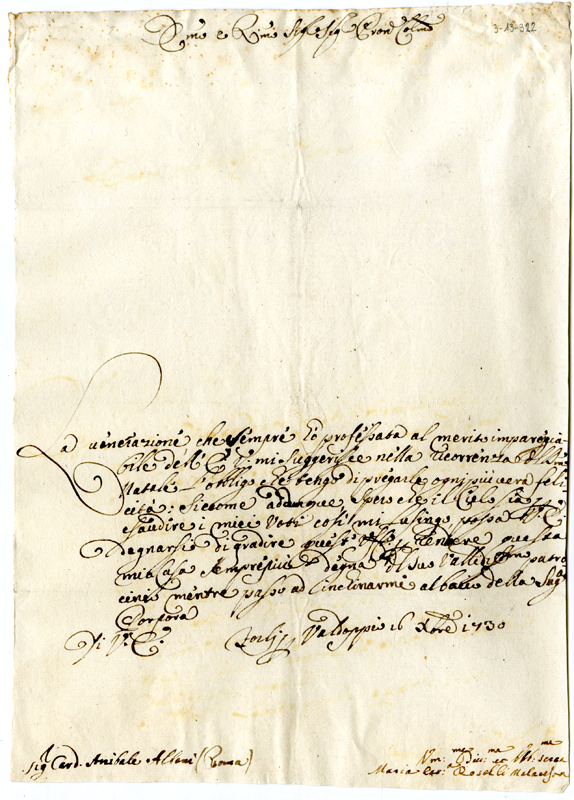 Emo e Rmo Sig.e Sig. Pron Colmo
3-13-322
La venerazione che sempre ò professata al merito impareggia
bile dell' E. V. mi suggerisce nella ricorrenza del
Natale l'obligo che tengo di pregarle ogni più vera feli
cità: siccome adunque spero che il Cielo sia p
esaudire i miei voti così mi lusingo possa V. E.
degnarsi di gradire quest' e tenere questa
mia Casa sempre più degna del suo patro
cinio mentre passo ad inclinarmi al bacio della Sag.
Porpora
Di V. E.
Forlì Valdoppio 16 Xbre 1730
Sig. Card. Anibale Albani (Roma)
Um:ma Div:ma et Obl:ma serva
Maria